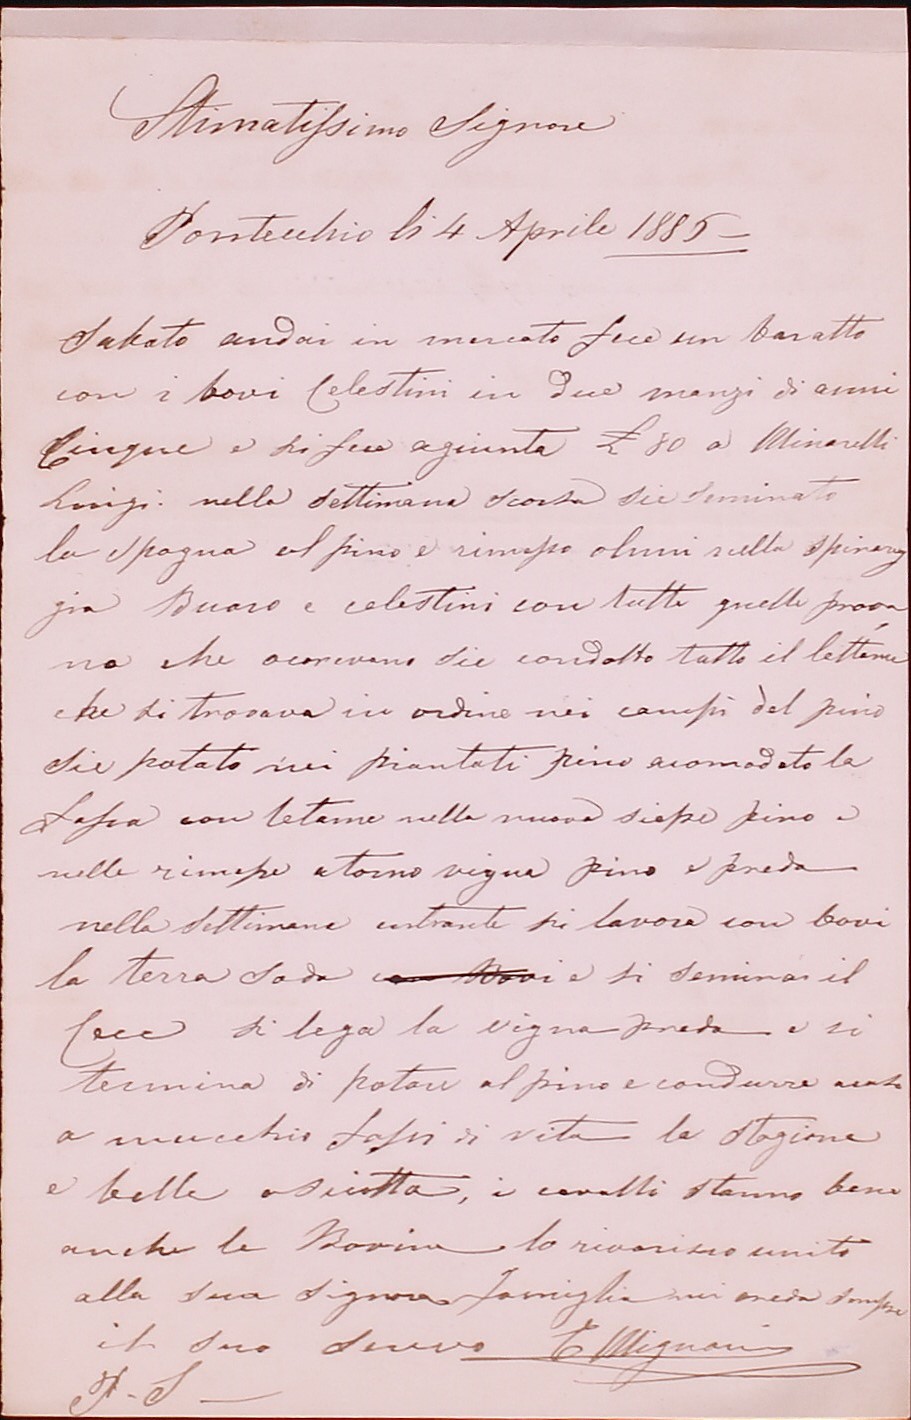 Stimatissimo Signore
Pontecchio li 4 Aprile 1886
Sabato andai in mercato fece un baratto
con i bovi Celestini in due manzi di anni
Cinque e si fece agiunta £ 80 a Minarelli
Luigi. nella settimana scorsa sie seminato
la Spagna al pino e rimesso olmi nella
gia Buaro e celestini con tutte quelle prova
na che acorevano sie condotto tutto il lettame
che si trovava in ordine nei campi del pino
sie potato nei piantati pino acomodato la
con letame nella nuova siepe pino e
nelle rimesse atorno vigna pino e preda
nella Settimana entrante si lavora con bovi
la terra Soda e si semina il
Cece si lega la vigna preda e si
termina di potare al pino e condurre
a mucchio di vita la stagione
e bella asiutta, i cavalli stanno bene
anche le Bovine lo riverisco unito
alla sua signora famiglia mi creda sempre
il suo servo E Mignani
P. S